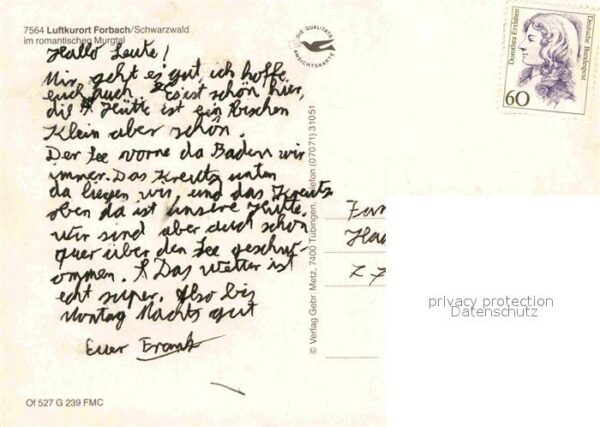 7564 Luftkurort Forbach/Schwarzwald
im romantischen Murgtal
Hallo Leute!
Mir geht es gut, ich hoffe
euch auch. Es ist schön hier,
die Hütte ist ein bischen
Klein aber schön.
Der See vorne da Baden wir
immer. Das Kreutz unten
da liegen wir, und das Kreutz
oben da ist unsere Hütte.
Wir sind aber auch schon
quer über den See geschw-
ommen. Das Wetter ist
echt super. Also bis
Montag Nachts gut
Euer Frank
Of 527 G 239 FMC
DIE QUALITÄTS
ANSICHTSKARTE
© Verlag Gebr. Metz, 7400 Tübingen, Telefon (07071) 31051
Dorothea Erxleben
Deutsche Bundespost
60
Fam
Ha
77
privacy protection
Datenschutz